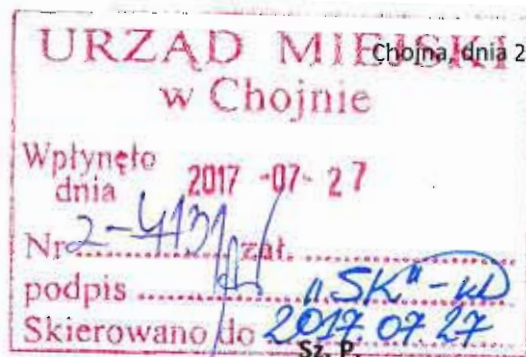 URZĄD MIEJSKI Chojna, dnia 2
w Chojnie
Wpłynęło
dnia 2017 -07- 27
Nr 2-4131 zał.
podpis "SK"
Skierowano do 2017 07 27
Sz. P.